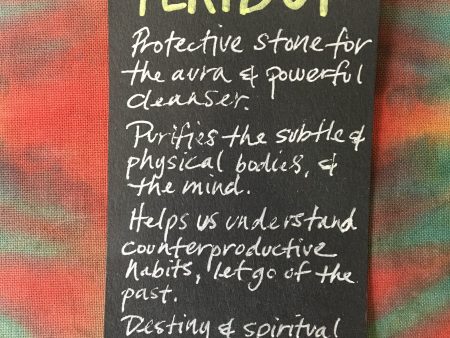 PERIDOT
Protective stone for
the aura & powerful
cleanser.
Purifies the subtle &
physical bodies, &
the mind.
Helps us understand
counterproductive
habits, let go of the
past.
Destiny & spiritual